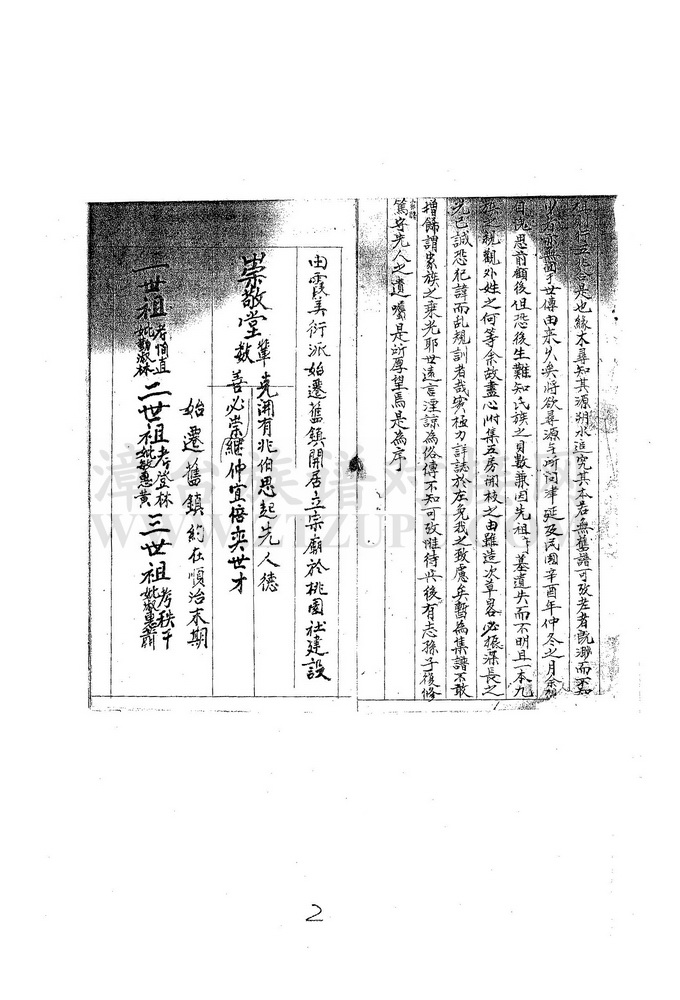 五兆合是也緣木尋知其源朔水追究其本若無舊譜可攷左者既渺而不知
于世傳由來久矣將欲尋源与所问津延及民國辛酉年仲冬之月余
自愧思前顧後但恐後生難知氏族之貝數兼因先祖墓遺失而不明且一本九
親觀外姓之何等余故盡心附集五房開枝之由雖造次草畧必振深長之
光已誠恐犯諱而乱規訓者哉实極力詳誌於左免我之致慮矣暫為集譜不敢
增飾謂家族之乘光耶世遠言湮諒為俗傳不知可攷惟待與後有志孫子復修
篤守先人之遺囑是所厚望焉是為序
由霞美衍派始遷舊鎮開居立宗廟於桃園社建設
崇敬堂輩数
克開有兆伯思起先人德
善必崇繼仲宜倍奕世才
始遷舊鎮約在順治末期
一世祖考伯直妣勤淑林 二世祖考登林妣敏惠黄 三世祖考秩千妣淑惠蕭
2